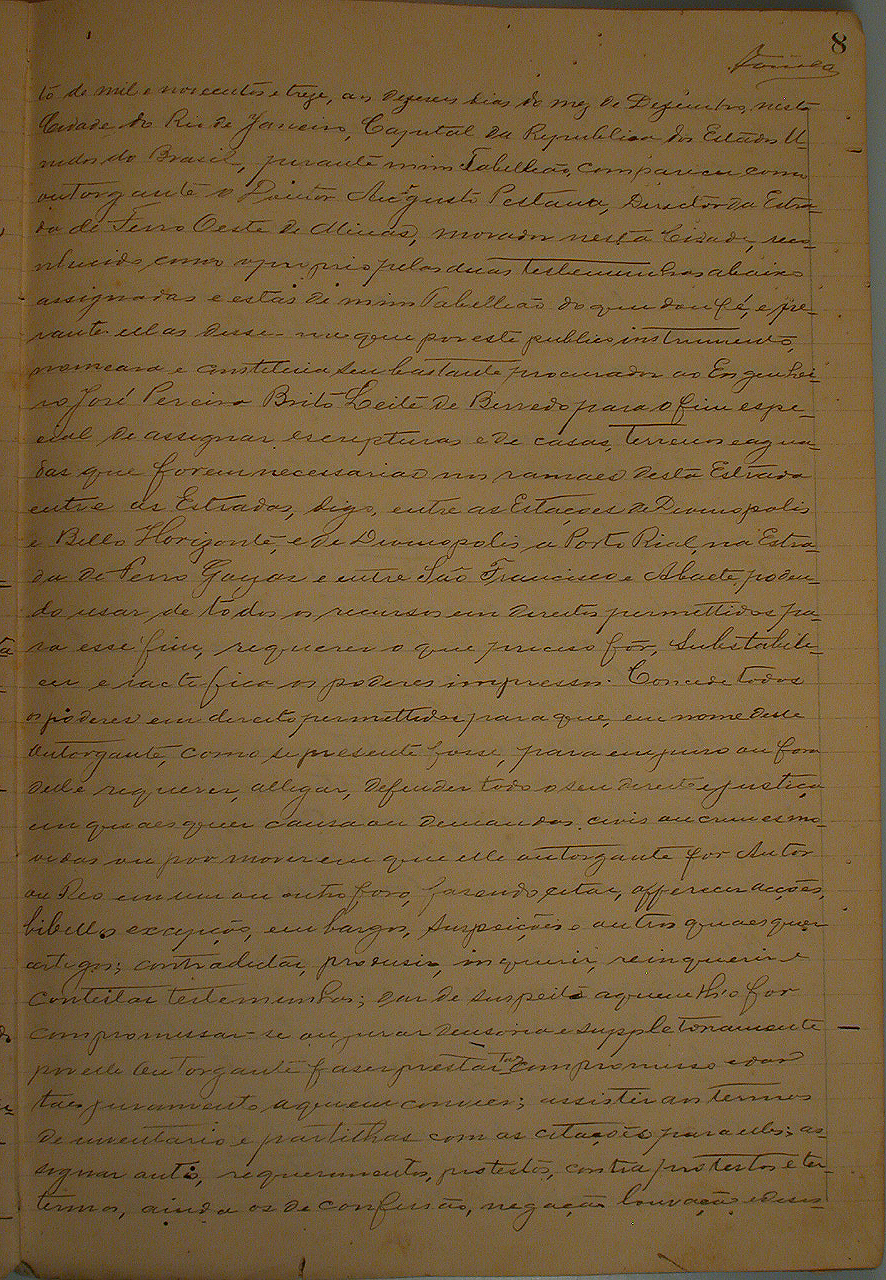 8
to de mil e novecentos e treze, aos dezeseis dias do mez de Dezembro, nesta
Cidade do Rio de Janeiro, Capital da Republica dos Estados U-
nidos do Brasil, perante mim Tabellião, compareceu como
outorgante o Doutor Augusto Pestana, Director da Estra-
da de Ferro Oeste de Minas, morador nesta Cidade, reco-
nhecido como o proprio pelas duas testemunhas abaixo
assignadas e estas de mim Tabellião do que dou fé, e pe-
rante ellas disse-me que por este publico instrumento,
nomeava e constituia seu bastante procurador ao Engenhei-
ro José Pereira Brito Leite de Berredo para o fim espe-
cial de assignar escripturas e de casas, terrenos e agua-
das que forem necessarias nos ramaes desta Estrada
entre as Estradas, digo, entre as Estações de Divinopolis
e Bello Horizonte, e de Divinopolis a Porto Rial, na Estra-
da de Ferro Goyaz e entre São Francisco e Abaete, poden-
do usar de todos os recursos em direito permettidos pa-
ra esse fim, requerer o que preciso fôr, substabele-
cer e ractifica os poderes impressos. Concede todos
os poderes em direito permettidos para que, em nome delle
Outorgante, como se presente fosse, para em juizo ou fora
delle requerer, allegar, defender todo o seu direito e justiça
em quaesquer causa ou demandas civis ou crimes mo-
vidas ou por mover em que elle outorgante for Autor
ou Reo em um ou outro foro, fazendo citar, offerecer acções,
libellos excepção, embargos, suspeições e outros quaesquer
artigos; contradictar, produsir, inquerir, reinquerir e
contestar testemunhas; dar de suspeito a quem lh'o for
compromessar-se ou jurar decisoria e suppletoriamente
por elle Outorgante faser prestar taes compromisso e dar
taes juramento a quem convier; assistir aos termos
de inventario e partilhas com as citações para elles; as-
signar auto, requerimentos, protestos, contra protestos e ter-
termos, ainda os de confissão, negação louvação e desis-